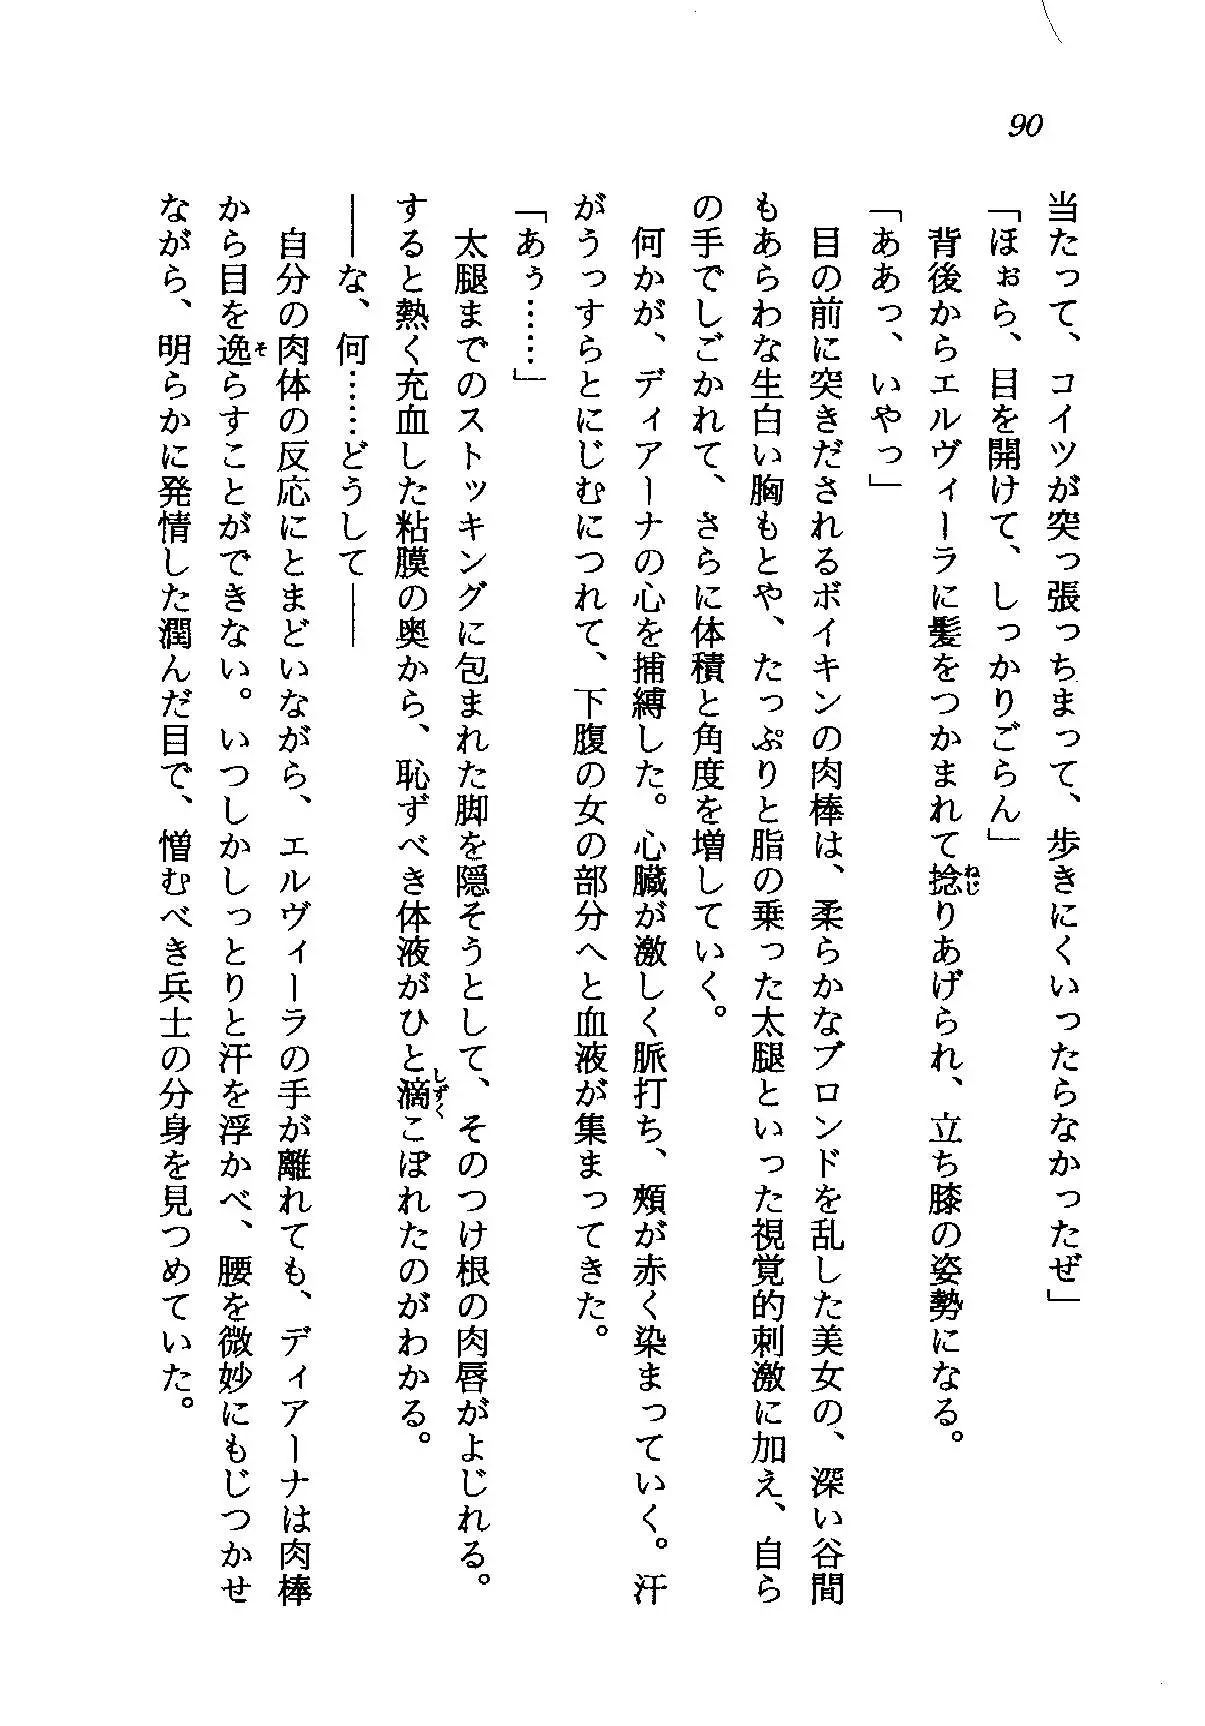 90
当たって、コイツが突っ張っちまって、歩きにくいったらなかったぜ」
「ほぉら、目を開けて、しっかりごらん」
ねじ
背後からエルヴィーラに髪をつかまれて捻りあげられ、立ち膝の姿勢になる。
「ああっ、いやっ」
目の前に突きだされるボイキンの肉棒は、柔らかなブロンドを乱した美女の、深い谷間
もあらわな生白い胸もとや、たっぷりと脂の乗った太腿といった視覚的刺激に加え、自ら
の手でしごかれて、さらに体積と角度を増していく。
何かが、ディアーナの心を捕縛した。心臓が激しく脈打ち、頬が赤く染まっていく。汗
がうっすらとにじむにつれて、下腹の女の部分へと血液が集まってきた。
「あぅ……」
太腿までのストッキングに包まれた脚を隠そうとして、そのつけ根の肉唇がよじれる。
しずく
すると熱く充血した粘膜の奥から、恥ずべき体液がひと滴こぼれたのがわかる。
――な、何……どうして――
自分の肉体の反応にとまどいながら、エルヴィーラの手が離れても、ディアーナは肉棒
そ
から目を逸らすことができない。いつしかしっとりと汗を浮かべ、腰を微妙にもじつかせ
ながら、明らかに発情した潤んだ目で、憎むべき兵士の分身を見つめていた。